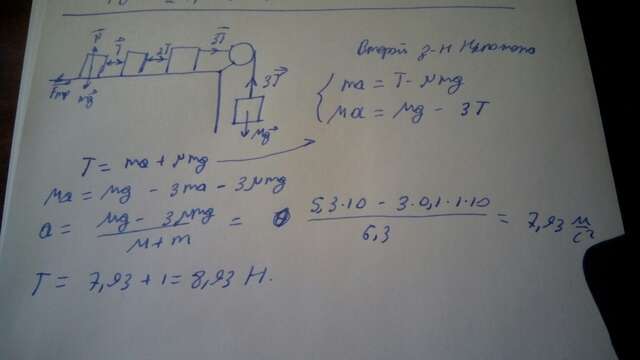 N T 2T 3T
Fтр mg 3T Mg
Второй з-н Ньютона
ma = T - μmg
Ma = Mg - 3T
T = ma + μmg
Ma = Mg - 3ma - 3μmg
a = Mg - 3μmg / M + m = 5,3·10 - 3·0,1·1·10 / 6,3 = 7,93 м/с²
T = 7,93 + 1 = 8,93 Н.